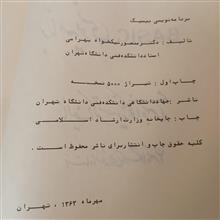 برنامه‌نویسی بیسیک
تألیف : دکتر منصور نیکخواه بهرامی
استاد دانشکده فنی دانشگاه تهران
چاپ اول : تیراژ ۵۰۰۰ نسخه
ناشر : جهاد دانشگاهی دانشکده فنی دانشگاه تهران
چاپ : چاپخانه وزارت ارشاد اسلامی
کلیه حقوق چاپ و انتشار برای ناشر محفوظ است .
مهرماه ۱۳۶۳ ، تهران